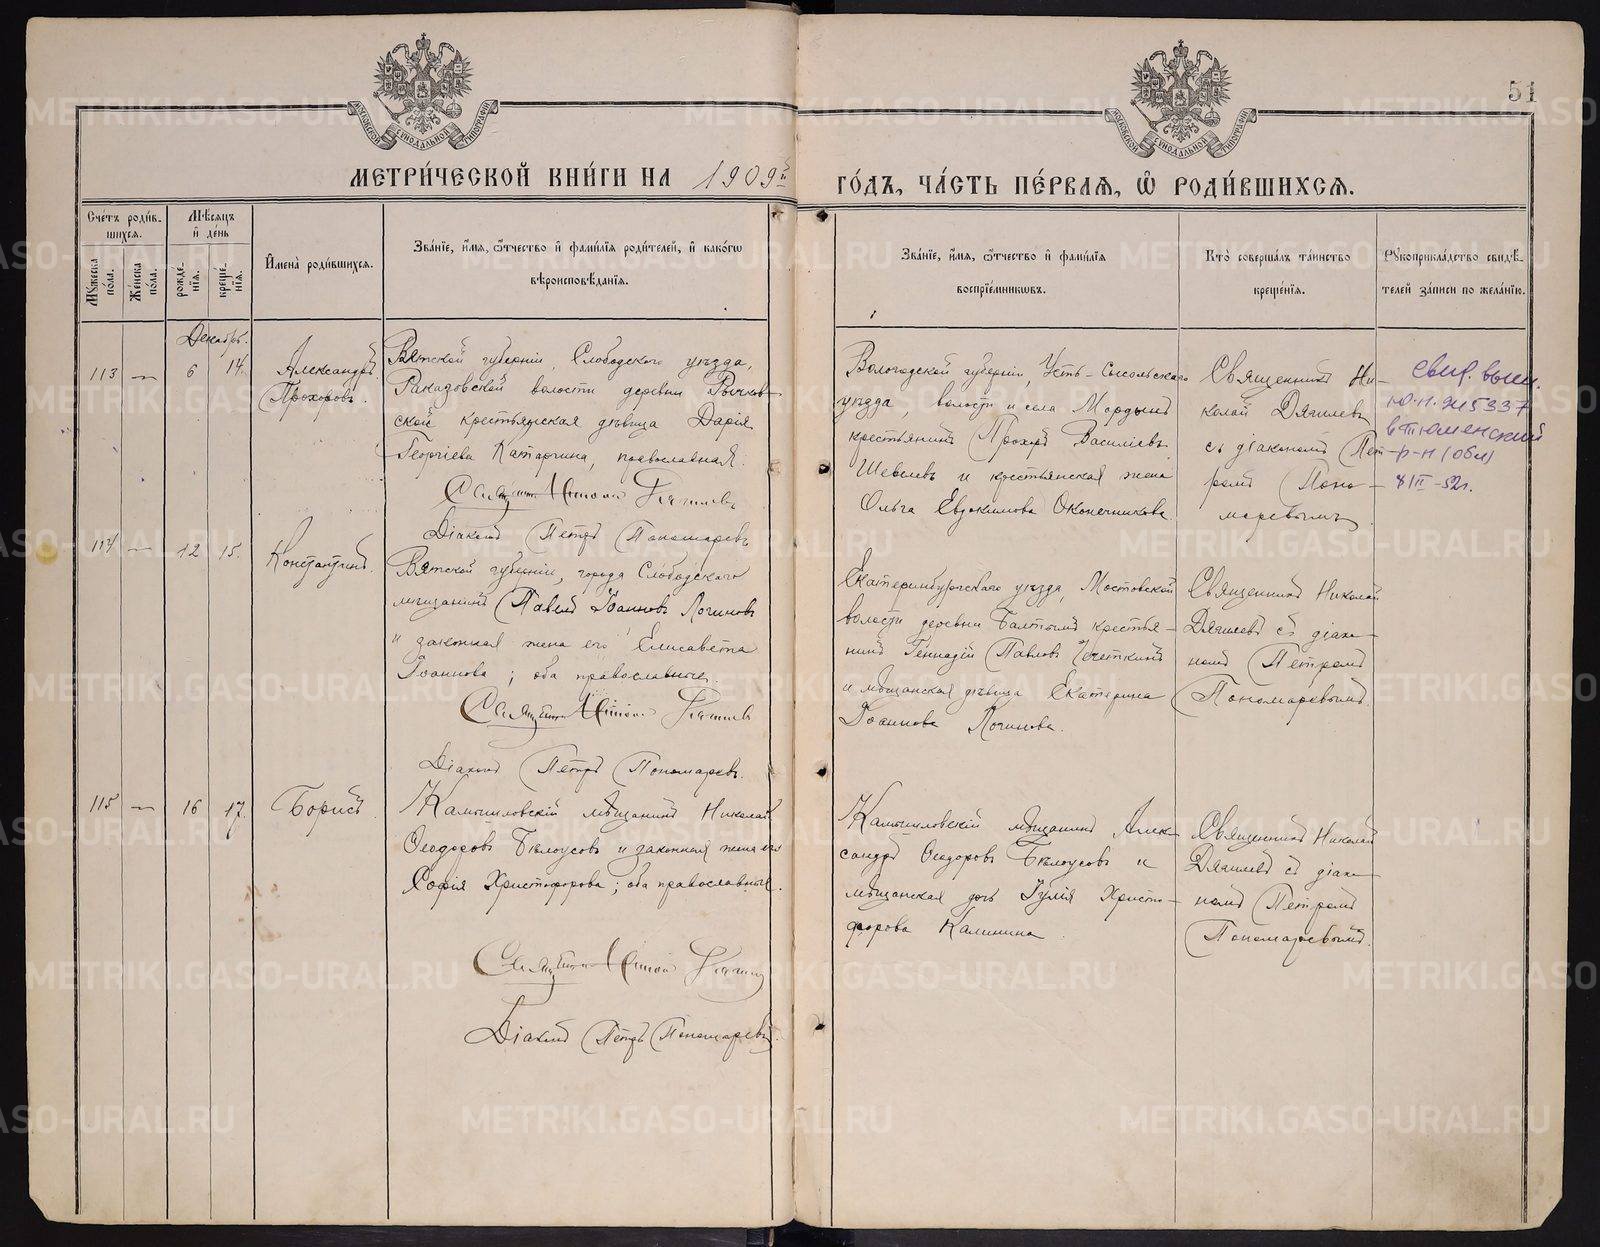 51
МЕТРИЧЕСКОЙ КНИГИ НА 1909й ГОДЪ, ЧАСТЬ ПЕРВАЯ, Ѡ РОДИВШИХСЯ.
МОСКОВСКОЙ СѴНОДАЛЬНОЙ ТИПОГРАФІИ
МОСКОВСКОЙ СѴНОДАЛЬНОЙ ТИПОГРАФІИ
Счетъ родив-
шихся.
Мужеска пола.
Женска пола.
Мѣсяцъ
и день
рожде-
нія.
креще-
нія.
Имена родившихся.
Званіе, имя, ѿчество и фамилія родителей, и какогѡ
вѣроисповѣданія.
Званіе, имя, ѿчество и фамилія
воспріемникѡвъ.
Кто совершалъ таинство
крещенія.
Рукоприкладство свидѣ-
телей записи по желанію.
Декабрь.
113 — 6 14.
Александръ
Прохоровъ.
Вятской губерніи, Слободского уѣзда,
волости деревни
ской крестьянская дѣвица Дарія
Георгіева Катаргина, православная.
Священникъ Николай Дягилевъ
Діаконъ Петръ Пономаревъ
Вологодской губерніи, Усть-Сысольскаго
уѣзда, волости и села Мордынъ
крестьянинъ Прохоръ Василіевъ
Шевелевъ и крестьянская жена
Ольга Евдокимова Оконечникова.
Священникъ Ни-
колай Дягилевъ
съ діакономъ Пет-
ромъ Поно-
маревымъ
Свид. выд.
в Тюменский
р-н (обл)
52г.
114 — 12 15.
Константинъ.
Вятской губерніи, города Слободского
мѣщанинъ Павелъ Іоанновъ Логиновъ
и законная жена его Елисавета
Іоаннова; оба православные.
Священникъ Николай Дягилевъ
Діаконъ Петръ Пономаревъ.
Екатеринбургскаго уѣзда, Мостовской
волости деревни Балтымъ крестья-
нинъ Геннадій Павловъ
и мѣщанская дѣвица Екатерина
Іоаннова Логинова.
Священникъ Николай
Дягилевъ съ діако-
номъ Петромъ
Пономаревымъ.
115 — 16 17.
Борисъ
Камышловскій мѣщанинъ Николай
Ѳеодоровъ Бѣлоусовъ и законная жена его
Софія Христофорова; оба православные.
Священникъ Николай Дягилевъ
Діаконъ Петръ Пономаревъ.
Камышловскій мѣщанинъ Алек-
сандръ Ѳеодоровъ Бѣлоусовъ и
мѣщанская дочь Іулія Христо-
форова Калинина.
Священникъ Николай
Дягилевъ съ діако-
номъ Петромъ
Пономаревымъ.
METRIKI.GASO-URAL.RU